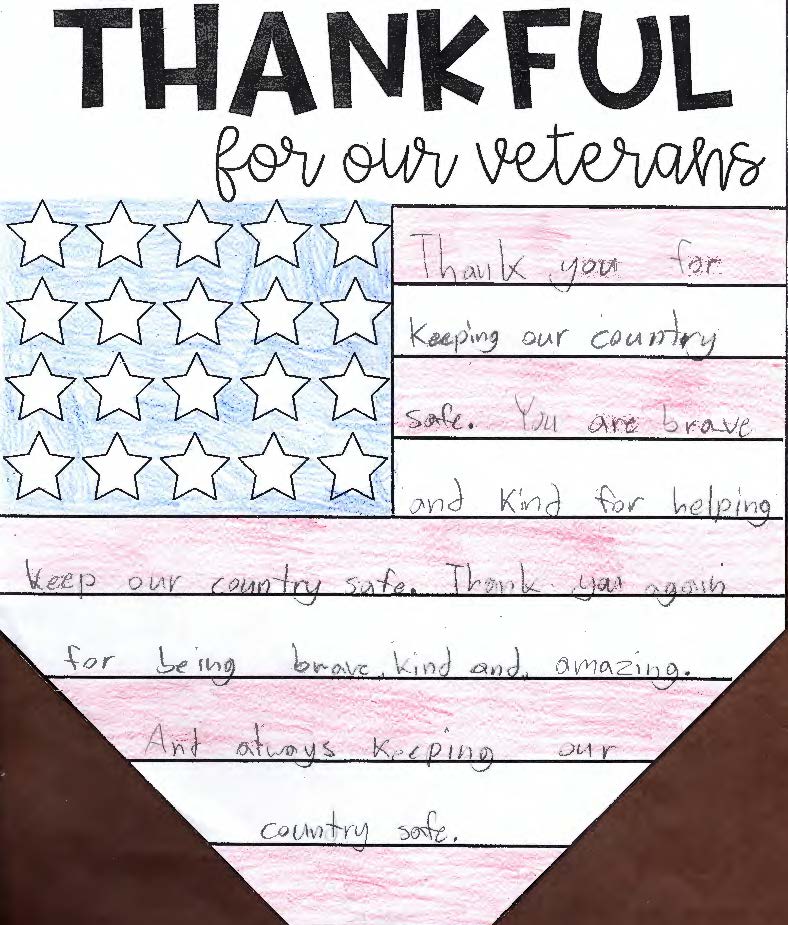 THANKFUL
for our veterans
Thank you for
keeping our country
safe. You are brave
and kind for helping
keep our country safe. Thank you again
for being brave, kind and, amazing.
And always keeping our
country safe.